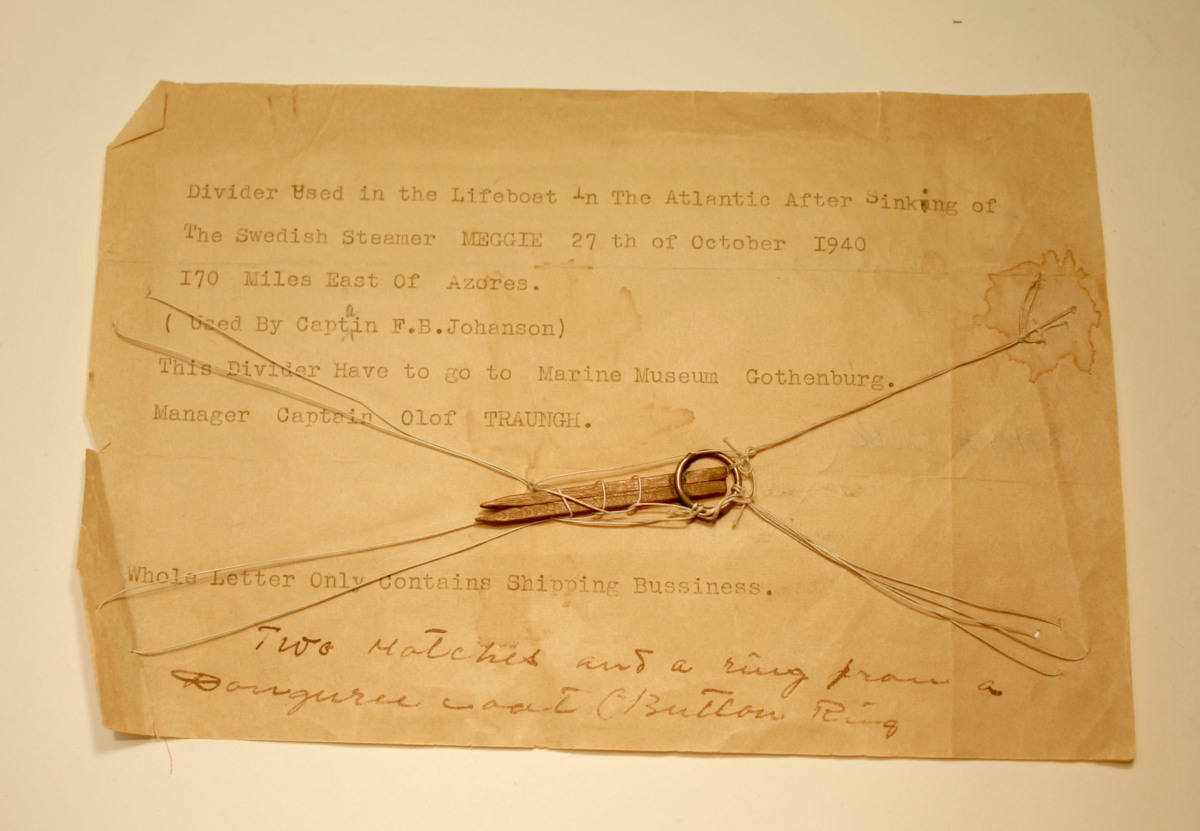 Divider Used in the Lifeboat In The Atlantic After Sinking of
The Swedish Steamer MEGGIE 27 th of October I940
I70 Miles East Of Azores.
( Used By Captain F.B.Johanson)
This Divider Have to go to Marine Museum Gothenburg.
Manager Captain Olof TRAUNGH.
Whole Letter Only Contains Shipping Bussiness.
Two Matches and a ring from a
Donguree coat (Button Ring